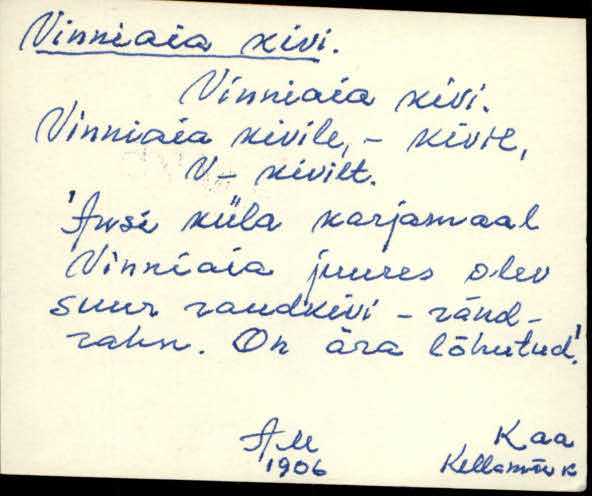 Vinniaia kivi.
Vinniaia kivi.
Vinniaia kivile, - kivil,
V- kivilt.
'Ansi küla karjamaal
Vinniaia juures olev
suur raudkivi - ränd-
rahn. On ära lõhutud.'
AM Kaa
1906